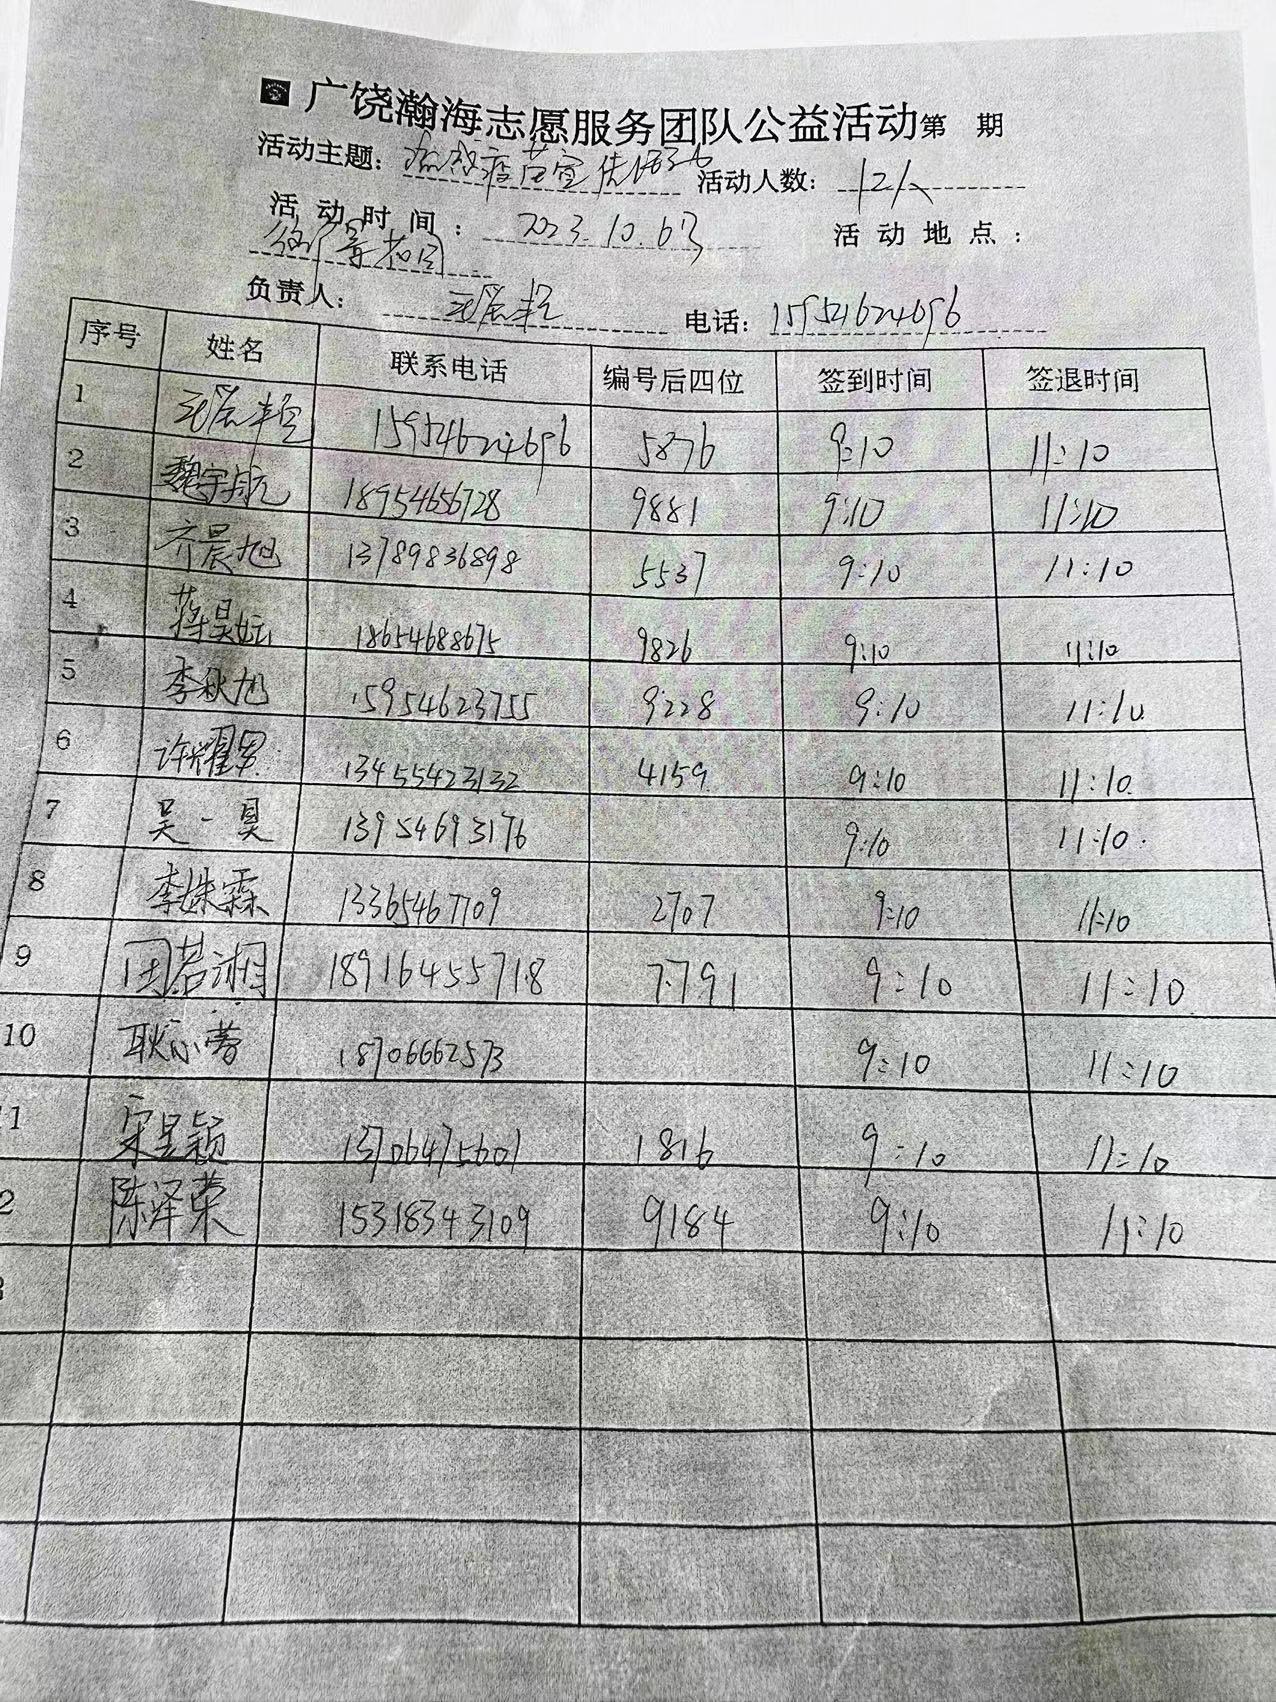 广饶瀚海志愿服务团队公益活动第 期
活动主题: 疫苗宣传 活动人数: 12人
活动时间: 2023.10.6 活动地点:
负责人: 电话: 15954624696
序号 姓名 联系电话 编号后四位 签到时间 签退时间
1 15954624696 5876 9:10 11:10
2 魏宇航 18954656728 9881 9:10 11:10
3 齐晨旭 13789836898 5537 9:10 11:10
4 蒋昊妘 18654688675 9826 9:10 11:10
5 李秋旭 15954623755 9228 9:10 11:10
6 许耀男 13455423132 4159 9:10 11:10
7 吴一昊 13954693176 9:10 11:10
8 李姝霖 13365467709 2707 9:10 11:10
9 若湘 18916455718 7791 9:10 11:10
10 耿 18706662573 9:10 11:10
1 宋昱颖 13706475601 1816 9:10 11:10
2 陈泽荣 15318343109 9184 9:10 11:10